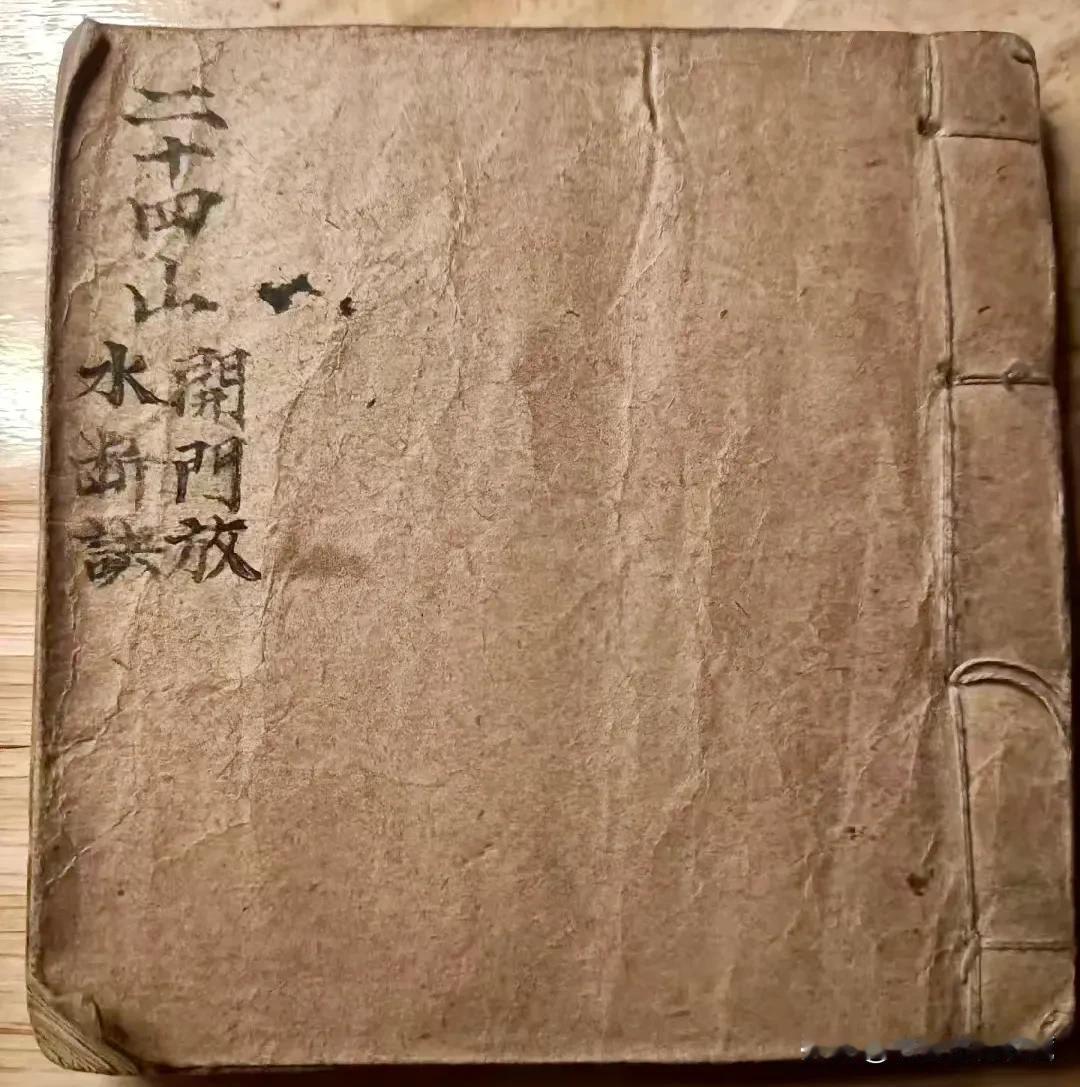 二十四山
開門放
水断訣